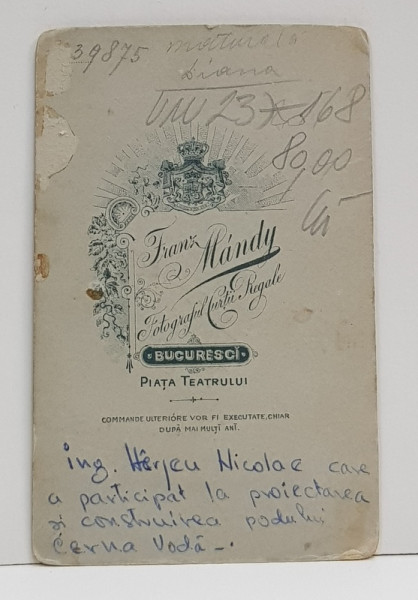 39875 matușa
Diana
23 X 168
80,00
Franz Mándy
Fotograful Curții Regale
BUCURESCI
PIAȚA TEATRULUI
COMMANDE ULTERIÓRE VOR FI EXECUTATE, CHIAR
DUPĂ MAI MULȚI ANI.
ing. Hârjeu Nicolae care
a participat la proiectarea
și construirea podului
Cerna Vodă -.